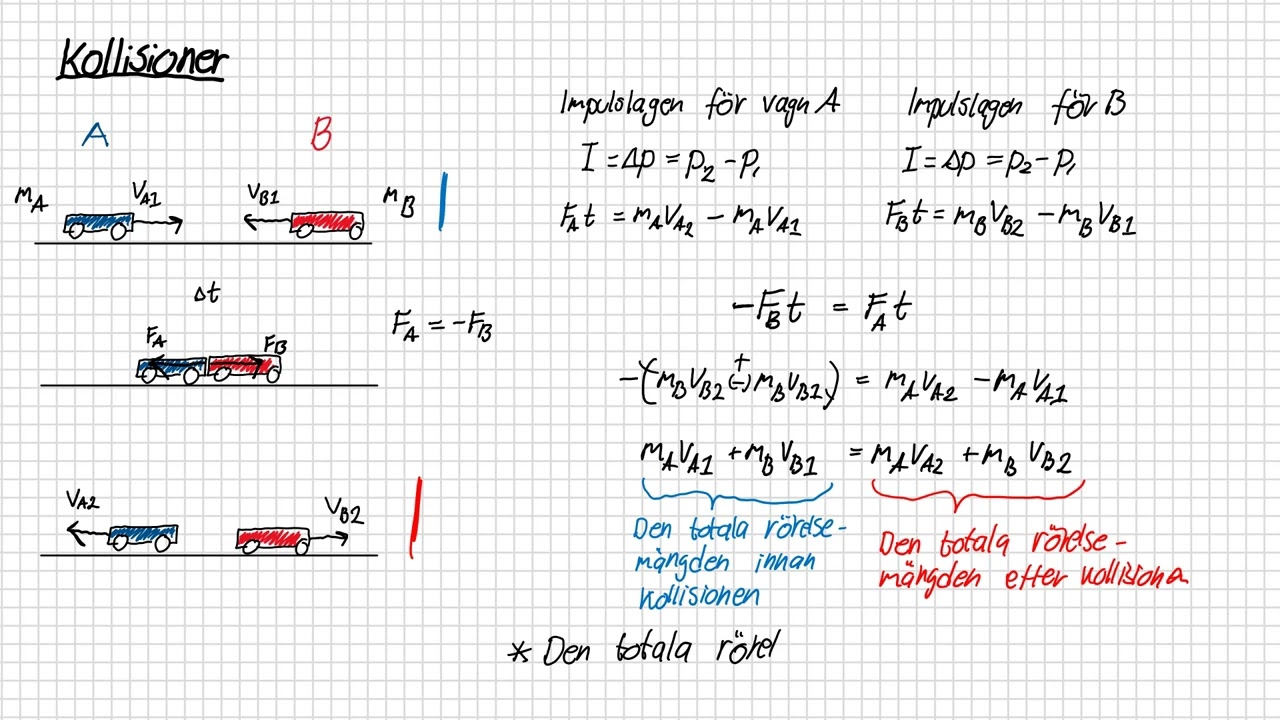 Kollisioner
A B
m_A V_A1 V_B1 m_B
Δt
F_A F_B F_A = -F_B
V_A2 V_B2
Impulslagen för vagn A
I = Δp = p_2 - p_1
F_A t = m_A V_A2 - m_A V_A1
Impulslagen för B
I = Δp = p_2 - p_1
F_B t = m_B V_B2 - m_B V_B1
-F_B t = F_A t
+
-(m_B V_B2 (-) m_B V_B1) = m_A V_A2 - m_A V_A1
m_A V_A1 + m_B V_B1 = m_A V_A2 + m_B V_B2
Den totala rörelse-
mängden innan
kollisionen
Den totala rörelse-
mängden efter kollisionen
* Den totala rörel